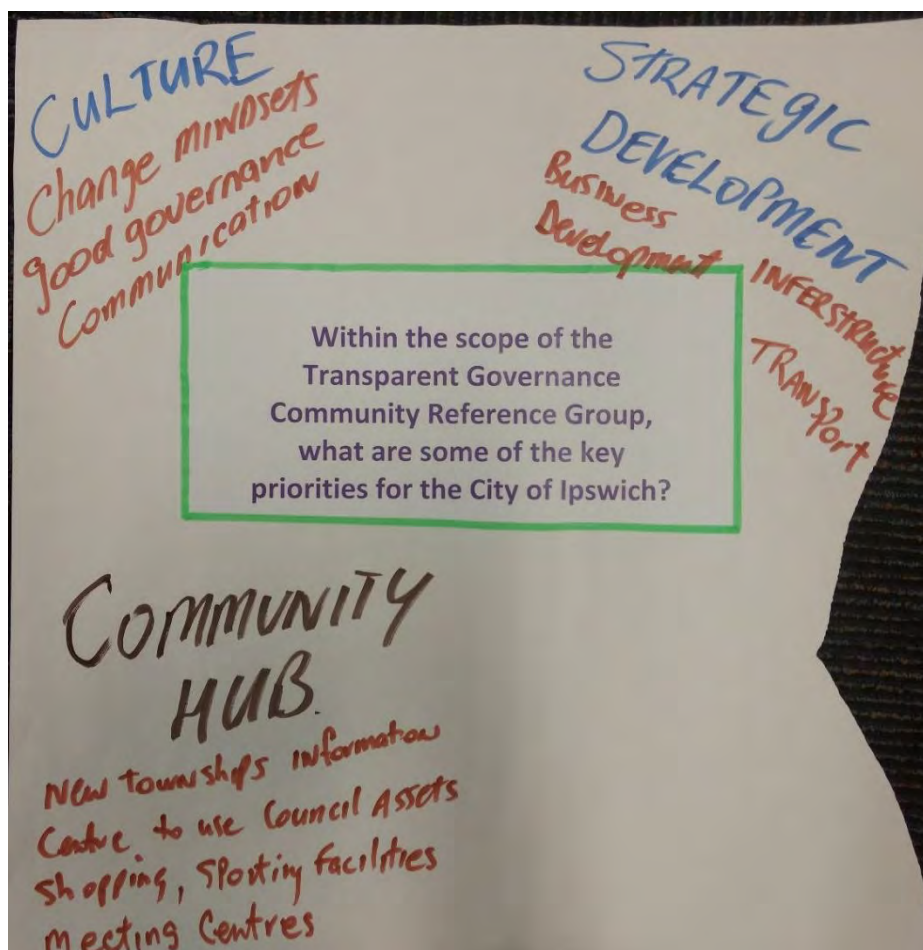 CULTURE
Change MINDsets
good governance
Communication
STRATEgIC
DEVELOPMENT
Business
Development
INFERSTRUCTURE
TRANSPORT
Within the scope of the
Transparent Governance
Community Reference Group,
what are some of the key
priorities for the City of Ipswich?
COMMUNITY
HUB.
New Townships information
Centre to use Council Assets
shopping, Sporting Facilities
Meeting Centres